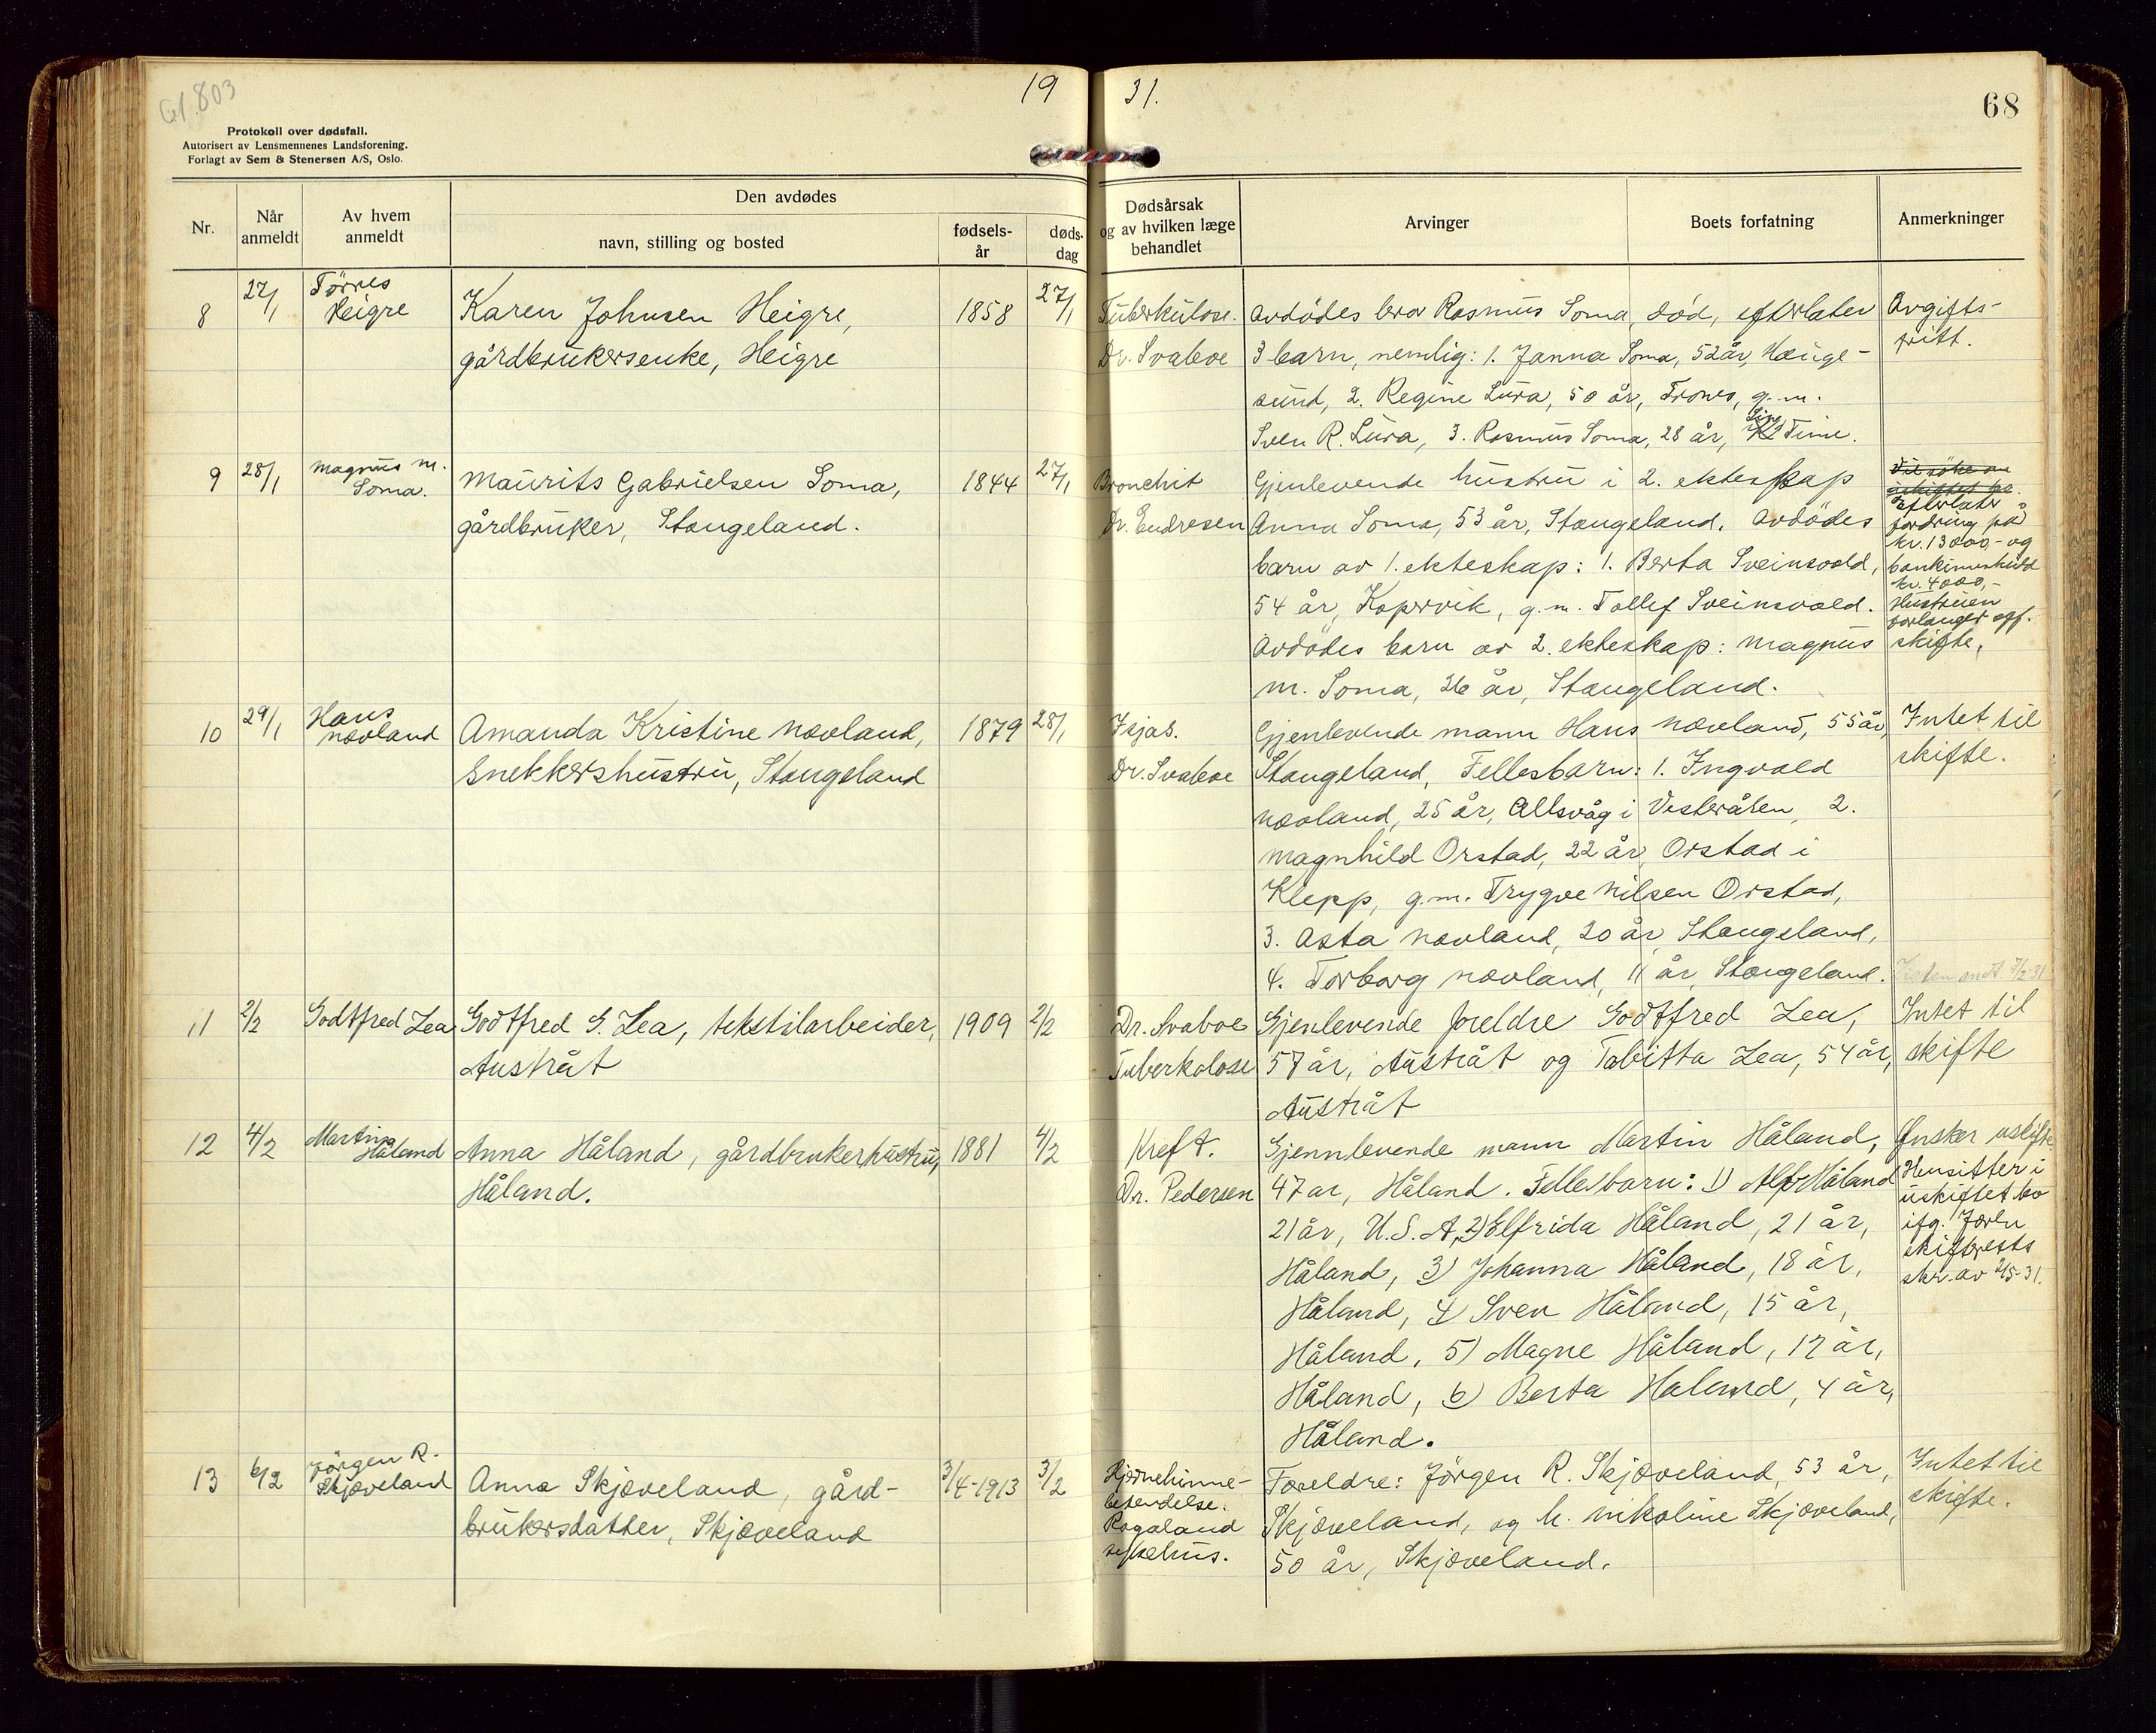 Gl. 803
19 31.
68
Protokoll over dødsfall.
Autorisert av Lensmennenes Landsforening.
Forlagt av Sem & Stenersen A/S, Oslo.
Nr.
Når anmeldt
Av hvem anmeldt
Den avdødes
navn, stilling og bosted
fødsels-år
døds-dag
Dødsårsak og av hvilken læge behandlet
Arvinger
Boets forfatning
Anmerkninger
8
27/1
Törres
Heigre
Karen Johnsen Heigre,
gårdbrukersenke, Heigre
1858
27/1
Tuberkulose.
Dr. Svaboe
Avdödes bror Rasmus Soma, död, efterlater
3 barn, nemlig: 1. Janna Soma, 52 år, Hauge-
sund, 2. Regine Lura, 50 år, Trones, g. m.
Sven R. Lura, 3. Rasmus Soma, 28 år, Line Time.
Avgifts-
fritt.
9
28/1
Magnus M.
Soma.
Maurits Gabrielsen Soma,
gårdbruker, Stangeland.
1844
27/1
Bronchit
Dr. Endresen
Gjenlevende hustru i 2. ekteskap
Anna Soma, 53 år, Stangeland. Avdödes
barn av 1. ekteskap: 1. Berta Sveinsvold,
54 år, Kopervik, g. m. Tollef Sveinsvold.
Avdödes barn av 2. ekteskap: Magnus
M. Soma, 26 år, Stangeland.
Vil söke om
uskiftet bo.
Efterlater
fordring på
kr. 13000,- og
bankinnskudd
kr. 4000,-
Hustruen
forlanger off.
skifte.
10
29/1
Hans
Nævland
Amanda Kristine Nævland,
snekkershustru, Stangeland
1879
28/1
Isjas.
Dr. Svaboe
Gjenlevende mann Hans Nævland, 55 år,
Stangeland, Fellesbarn: 1. Ingvald
Nævland, 25 år, Allsvåg i Vesterålen, 2.
Magnhild Orstad, 22 år, Orstad i
Klepp, g. m. Trygve Nilsen Orstad,
3. Asta Nævland, 20 år, Stangeland,
4. Torborg Nævland, 11 år, Stangeland.
Intet til
skifte.
11
2/2
Godtfred Lea
Godtfred G. Lea, tekstilarbeider,
Austråt
1909
2/2
Dr. Svaboe
Tuberkolose
Gjenlevende foreldre Godtfred Lea,
57 år, Austråt og Tabitta Lea, 54 år,
Austråt
Intet til
skifte
12
4/2
Martin
Håland
Anna Håland, gårdbrukerhustru,
Håland.
1881
4/2
Kreft.
Dr. Pedersen
Gjennlevende mann Martin Håland,
47 ar, Håland. Fellesbarn: 1) Alf Håland
21 år, U.S.A, 2) Elfrida Håland, 21 år,
Håland, 3) Johanna Håland, 18 år,
Håland, 4) Sven Håland, 15 år,
Håland, 5) Magne Håland, 12 år,
Håland, 6) Berta Haland, 4 år,
Håland.
Ønsker uskifte
Hensitter i
uskiftet bo
ifg. Jæren
skifterets
skr. av 2/5-31.
13
6/2
Jörgen R.
Skjæveland
Anna Skjæveland, gård-
brukersdatter, Skjæveland
3/4-1913
3/2
Hjernehinne-
betendelse.
Rogaland
sykehus.
Foreldre: Jörgen R. Skjæveland, 53 år,
Skjæveland, og h. Nikoline Skjæveland,
50 år, Skjæveland.
Intet til
skifte.